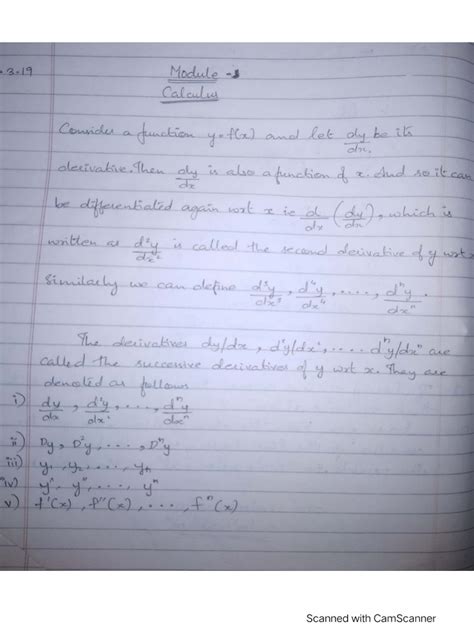 .3.19
Module -
Calculus
Consider a function y=f(x) and let dy/dx be its
derivative. Then dy/dx is also a function of x. And so it can
be differentiated again wrt x ie d/dx (dy/dx), which is
written as d²y/dx² is called the second derivative of y wrt x
Similarly we can define d³y/dx³, d⁴y/dx⁴, ...., dⁿy/dxⁿ.
The derivatives dy/dx, d²y/dx², .... dⁿy/dxⁿ are
called the successive derivatives of y wrt x. They are
denoted as follows
i) dy/dx, d²y/dx², ..., dⁿy/dxⁿ
ii) Dy, D²y, ...., Dⁿy
iii) y₁, y₂, .... yₙ
iv) y', y'', ...., yⁿ
v) f'(x), f''(x), ...., fⁿ(x)
Scanned with CamScanner